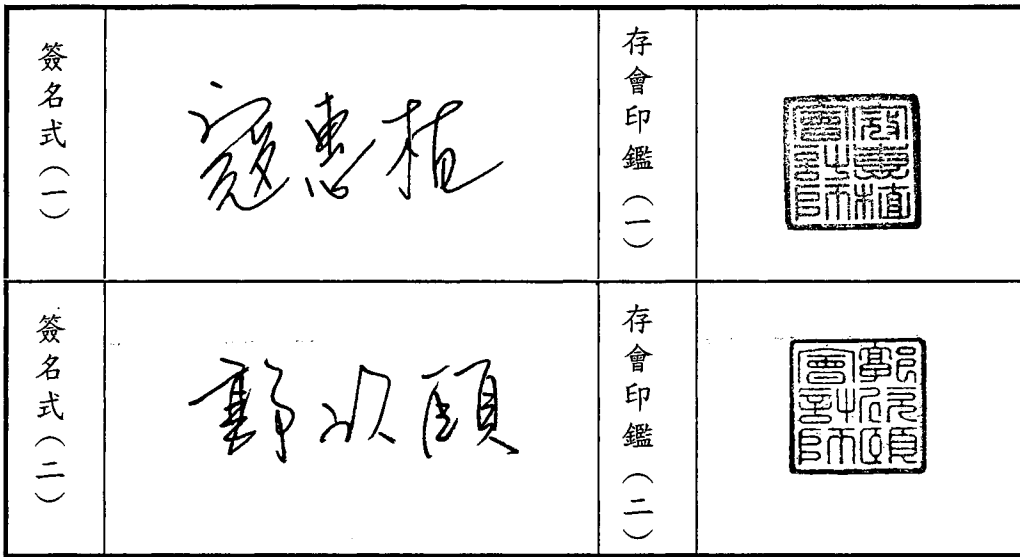 簽名式（一）
寇惠植
存會印鑑（一）
寇惠植會計師
簽名式（二）
郭欣頤
存會印鑑（二）
郭欣頤會計師